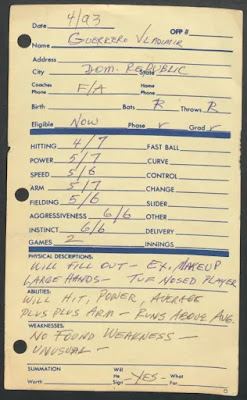 Date 4/93 OFP #
Name GUERRERO VLADIMIR
Address
City DOM. REPUBLIC State
Coaches Phone F/A Home Phone
Birth Bats R Throws R
Eligible NOW Phase ✓ Grad ✓
HITTING 4/7 FAST BALL
POWER 5/7 CURVE
SPEED 5/6 CONTROL
ARM 5/7 CHANGE
FIELDING 5/6 SLIDER
AGGRESSIVENESS 6/6 OTHER
INSTINCT 6/6 DELIVERY
GAMES 2 INNINGS
PHYSICAL DESCRIPTIONS:
WILL FILL OUT - EX. MAKEUP
LARGE HANDS - TUF NOSED PLAYER
ABILITIES:
WILL HIT, POWER, AVERAGE
PLUS PLUS ARM - RUNS ABOVE AVG.
WEAKNESSES:
NO FOUND WEAKNESS -
UNUSUAL -
SUMMATION Will What
Worth He Sign -YES- For